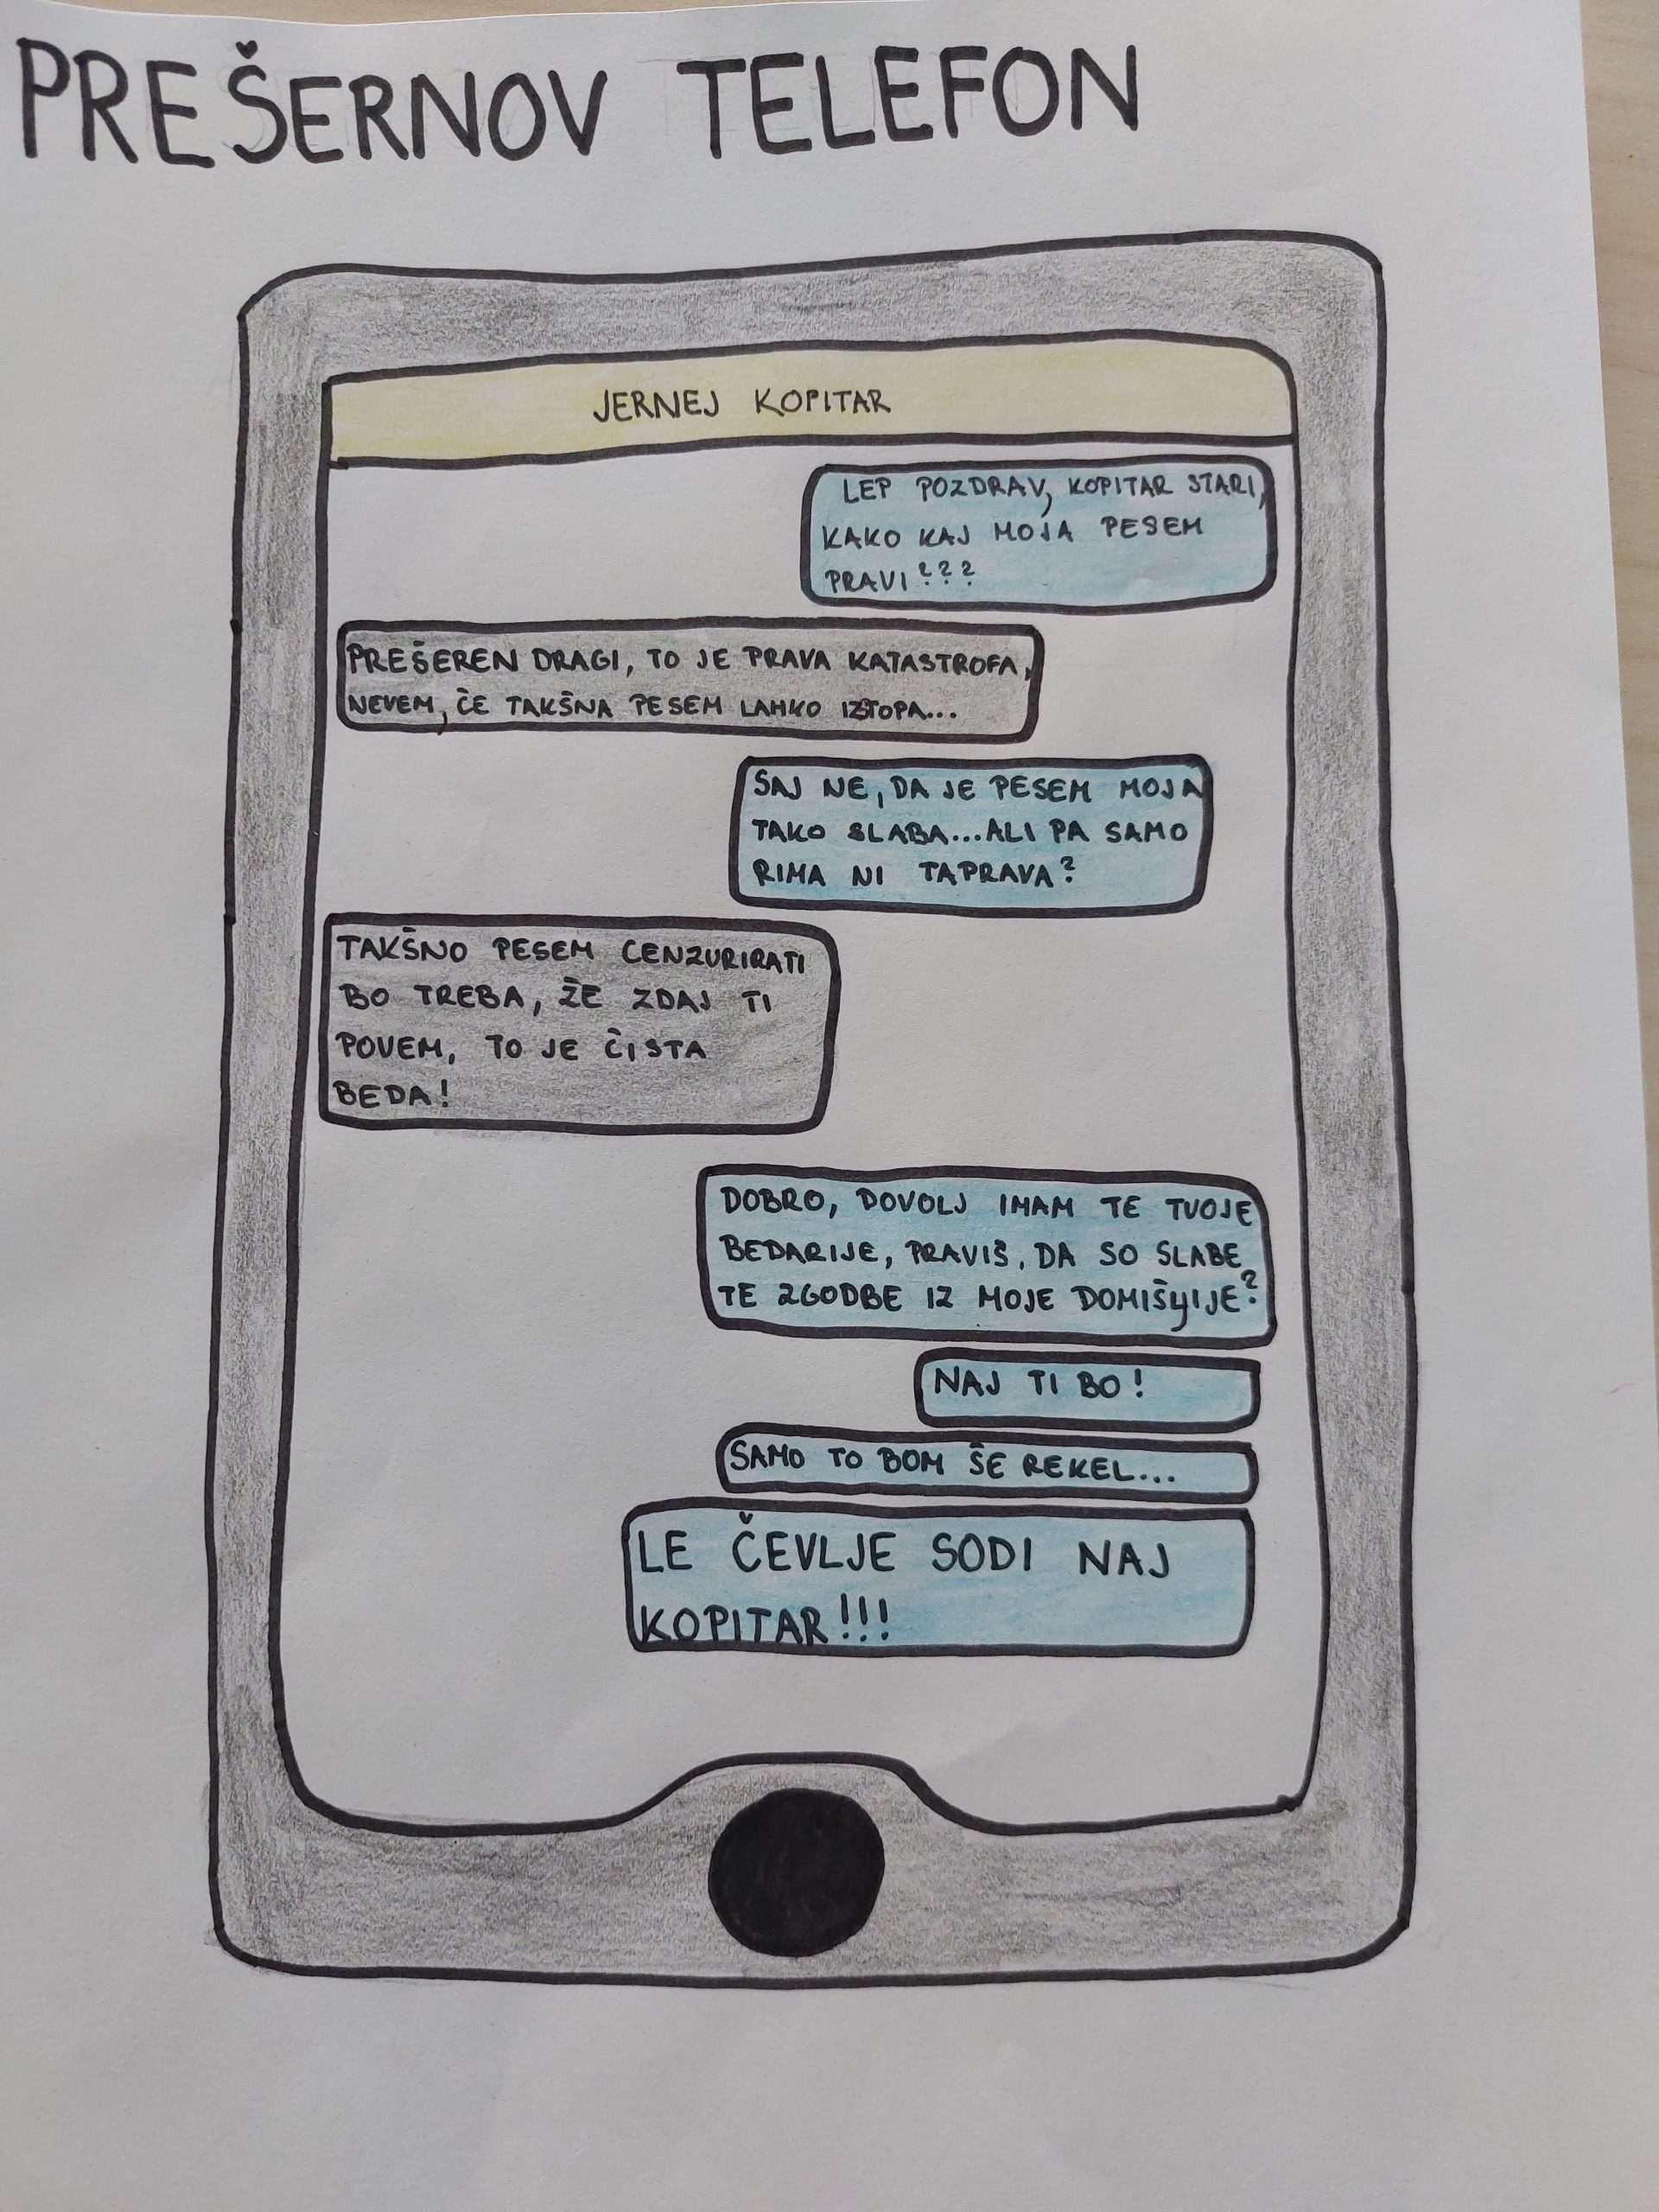 PREŠERNOV TELEFON
JERNEJ KOPITAR
LEP POZDRAV, KOPITAR STARI,
KAKO KAJ MOJA PESEM
PRAVI???
PREŠEREN DRAGI, TO JE PRAVA KATASTROFA,
NEVEM, ČE TAKŠNA PESEM LAHKO IZSTOPA...
SAJ NE, DA JE PESEM MOJA
TAKO SLABA...ALI PA SAMO
RIMA NI TAPRAVA?
TAKŠNO PESEM CENZURIRATI
BO TREBA, ŽE ZDAJ TI
POVEM, TO JE ČISTA
BEDA!
DOBRO, DOVOLJ IMAM TE TVOJE
BEDARIJE, PRAVIŠ, DA SO SLABE
TE ZGODBE IZ MOJE DOMIŠLJIJE?
NAJ TI BO!
SAMO TO BOM ŠE REKEL...
LE ČEVLJE SODI NAJ
KOPITAR!!!